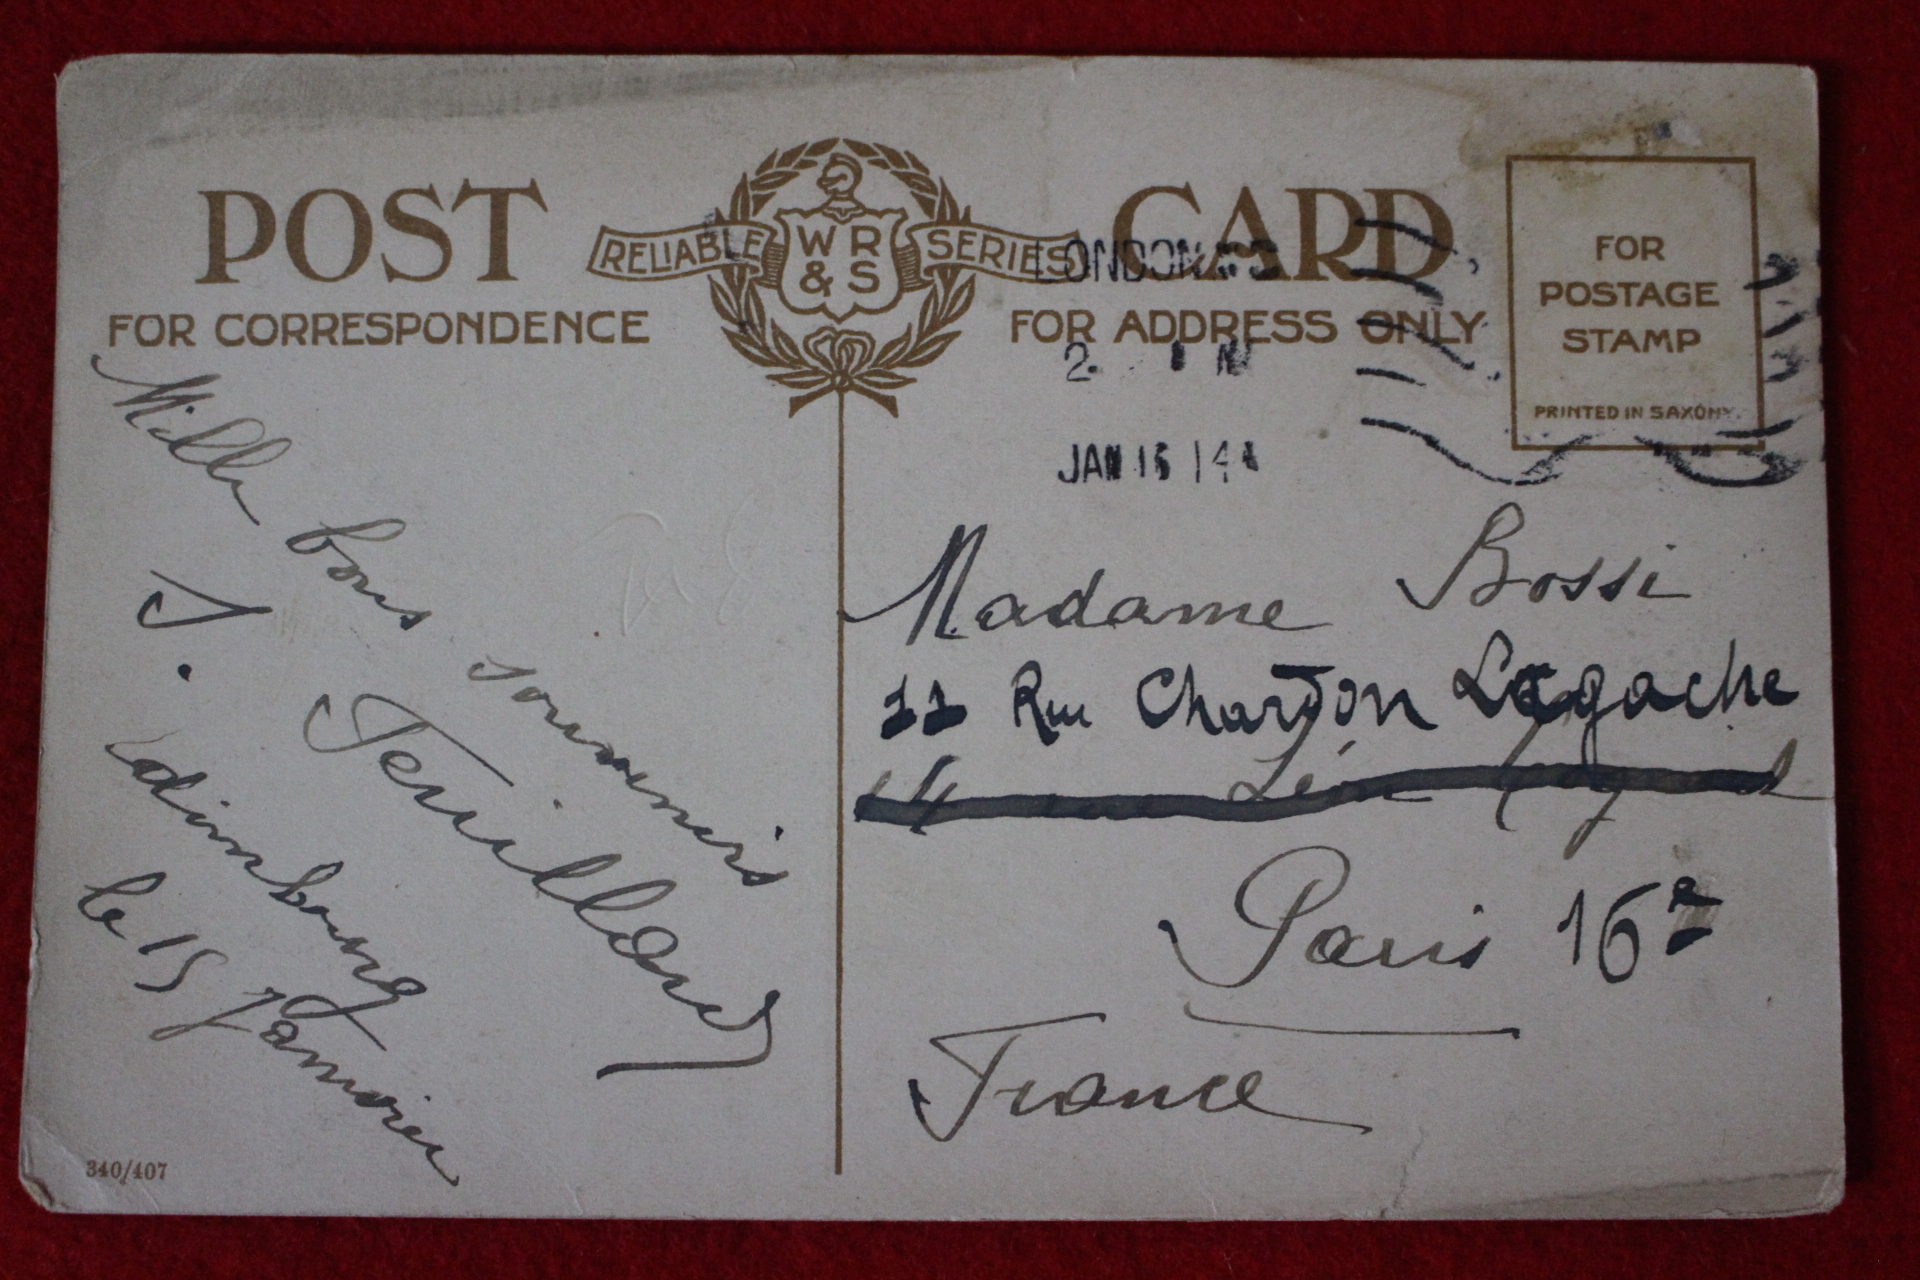 POST CARD
RELIABLE WR & S SERIES
FOR CORRESPONDENCE
FOR ADDRESS ONLY
FOR
POSTAGE
STAMP
PRINTED IN SAXONY.
LONDON
JAN 16 14
Mille bons souvenirs
J. Feuillard
Edimbourg
le 15 Janvier
340/407
Madame Bossi
11 Rue Chardon Lagache
Léon
Paris 16e
France